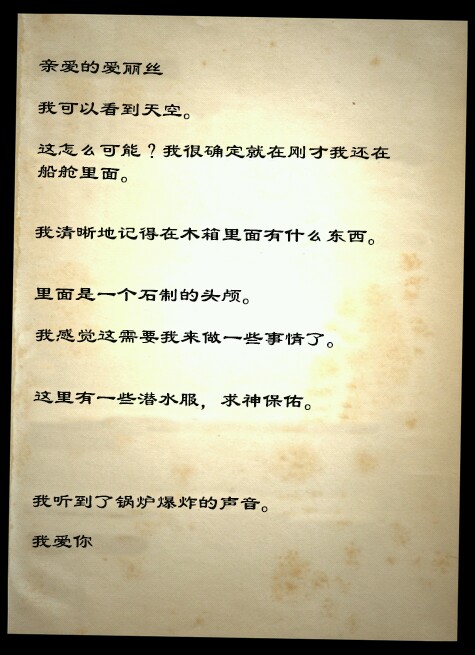 亲爱的爱丽丝
我可以看到天空。
这怎么可能？我很确定就在刚才我还在
船舱里面。
我清晰地记得在木箱里面有什么东西。
里面是一个石制的头颅。
我感觉这需要我来做一些事情了。
这里有一些潜水服，求神保佑。
我听到了锅炉爆炸的声音。
我爱你